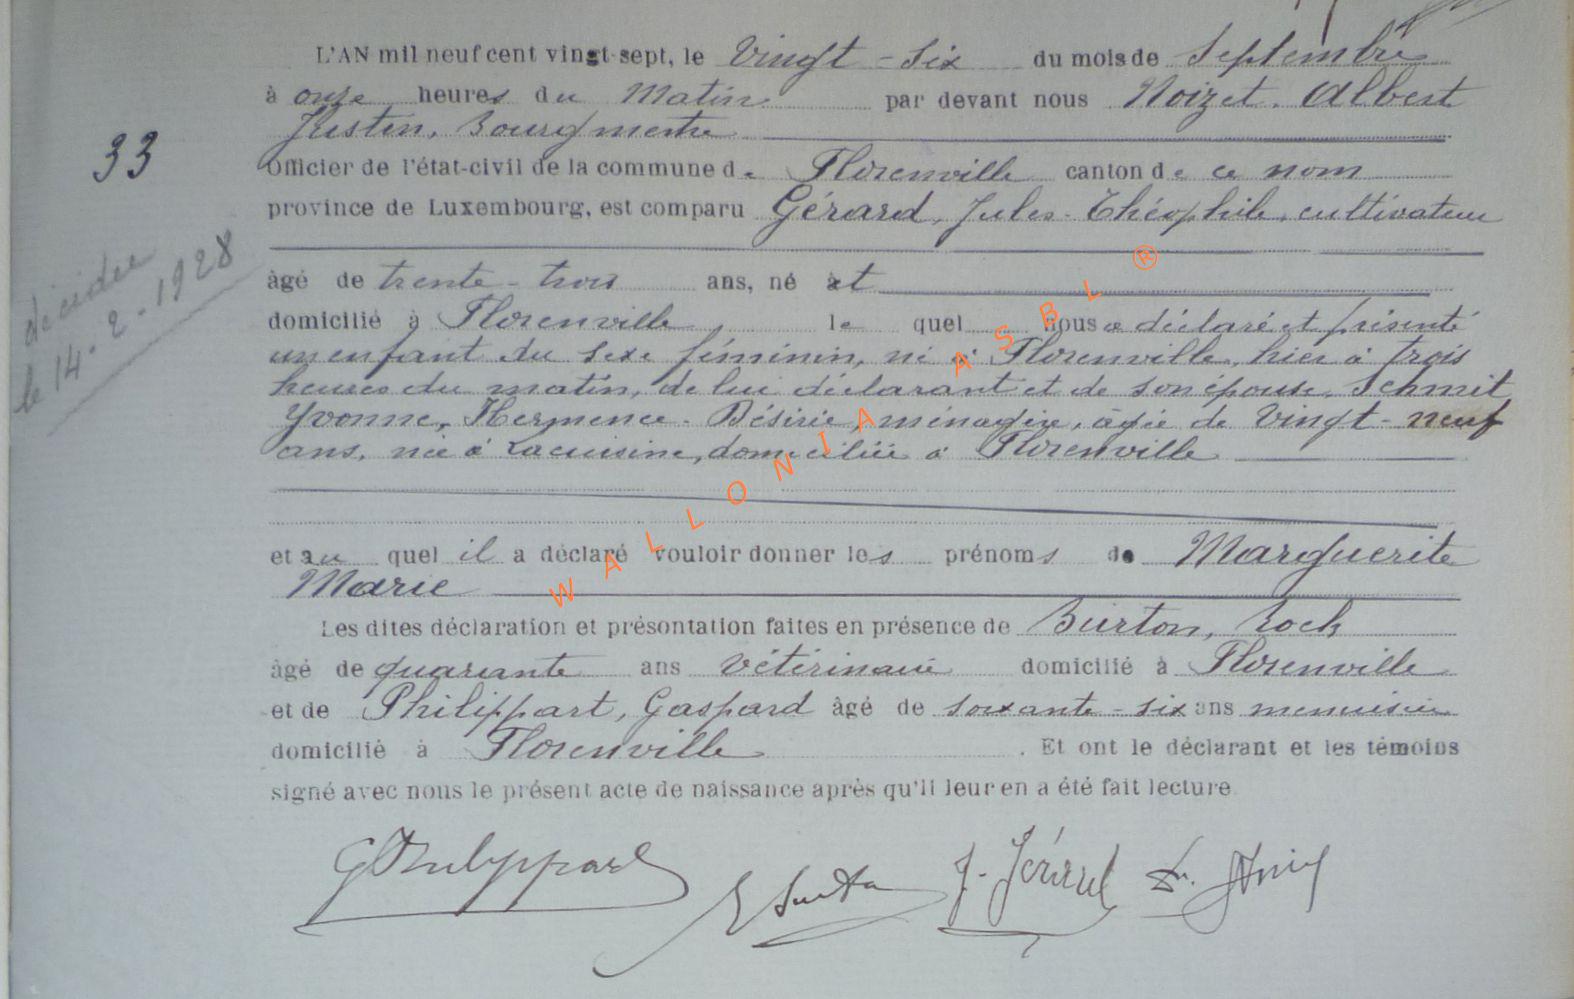 L'AN mil neuf cent vingt-sept, le Vingt-Six du mois de Septembre
à onze heures du Matin par devant nous Noizet. Albert
Justin, Bourgmestre
33
Officier de l'état-civil de la commune de Florenville canton de ce nom
province de Luxembourg, est comparu Gérard, Jules-Théophile, cultivateur
décédée
le 14-2-1928
âgé de trente-trois ans, né à et
domicilié à Florenville, le quel nous a déclaré et présenté
un enfant du sexe féminin, né à Florenville, hier à trois
heures du matin, de lui déclarant et de son épouse, Schmit
Yvonne, Hermence-Désirée, ménagère, âgée de Vingt-neuf
ans, née à Lacuisine, domiciliée à Florenville
et au quel il a déclaré vouloir donner les prénoms de Marguerite
Marie
Les dites déclaration et présontation faites en présence de Burton, Roch
âgé de quarante ans Vétérinaire domicilié à Florenville
et de Philippart, Gaspard âgé de soixante-six ans menuisier
domicilié à Florenville. Et ont le déclarant et les témoins
signé avec nous le présent acte de naissance après qu'il leur en a été fait lecture
G Philippart J. Gérard
WALLONIA ASBL ®